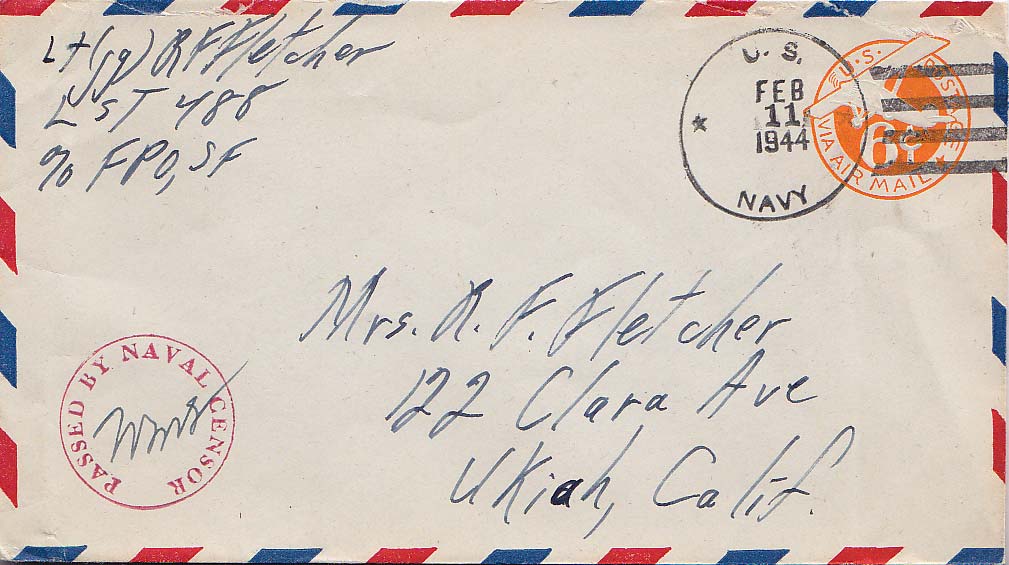 Lt(jg) R F Fletcher
LST 488
c/o FPO, SF
U. S.
FEB
11
1944
NAVY
U.S. POSTAGE
6¢
VIA AIR MAIL
Mrs. R. F. Fletcher
122 Clara Ave
Ukiah, Calif.
PASSED BY NAVAL CENSOR